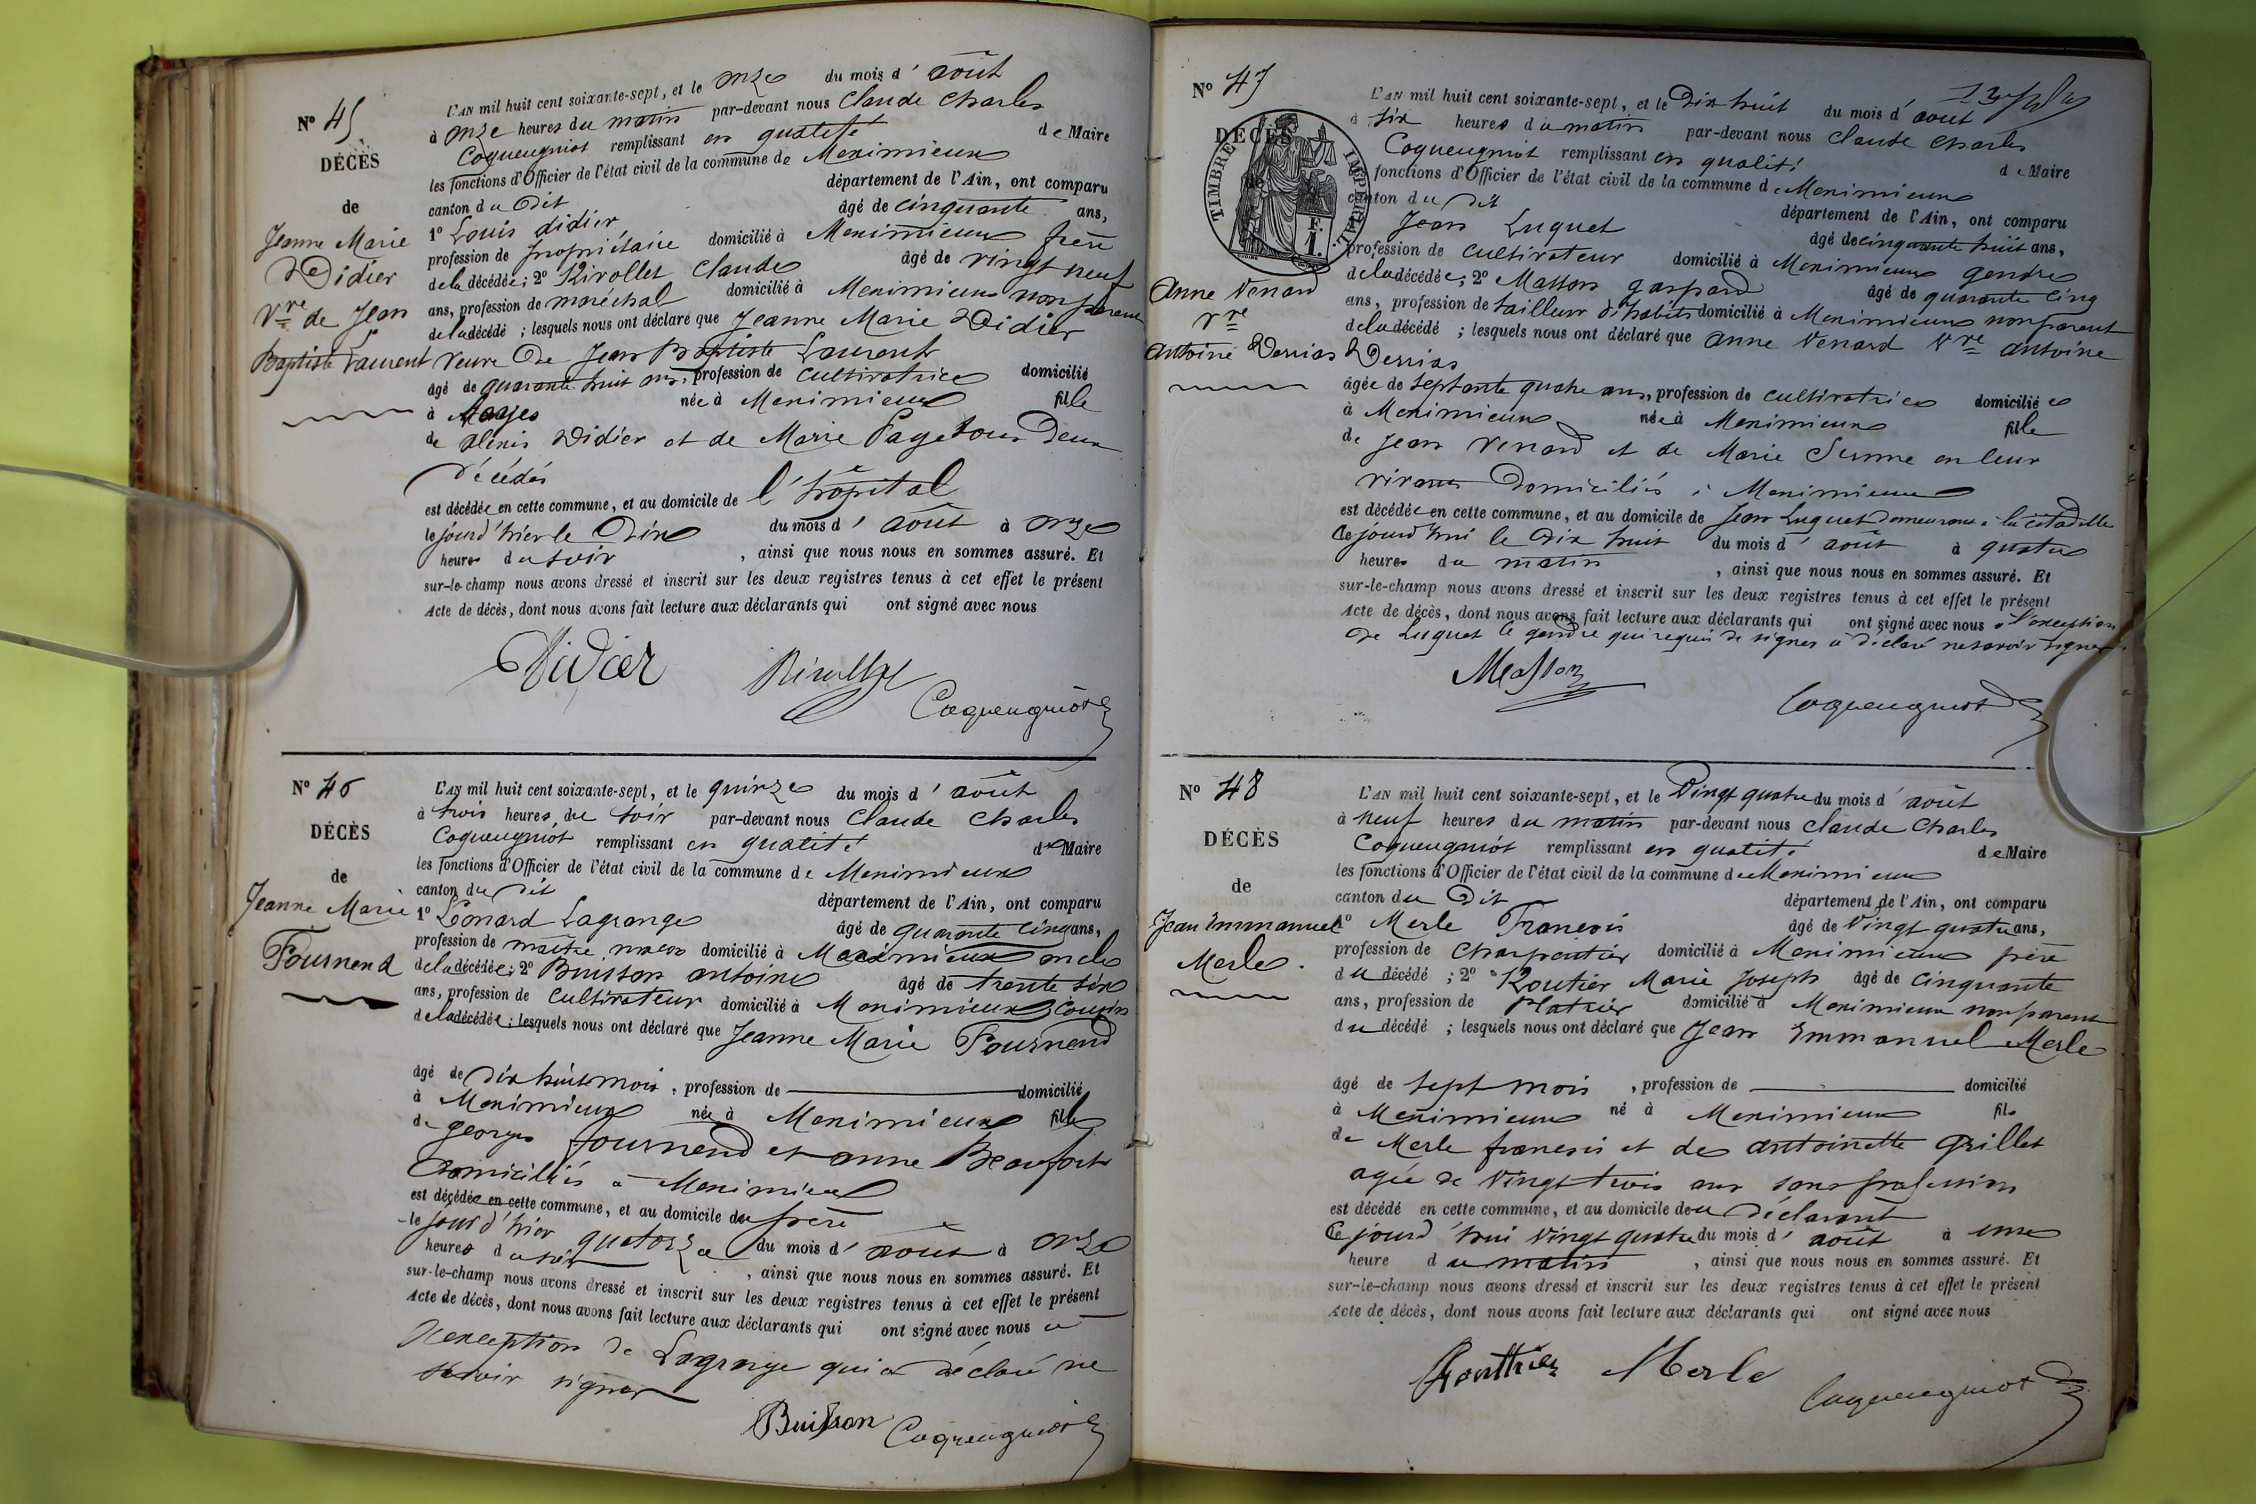 N° 45
DÉCÈS
de
Jeanne Marie
Didier
Vve de Jean
Baptiste Laurent
L'AN mil huit cent soixante-sept, et le onze du mois d'août
à onze heures du matin par-devant nous Claude Charles
Coqueugniot remplissant en qualité de Maire
les fonctions d'Officier de l'état civil de la commune de Meximieux
canton du dit département de l'Ain, ont comparu
1° Louis Didier âgé de cinquante ans,
profession de propriétaire domicilié à Meximieux frère
de la décédée; 2° Rivollet Claude âgé de vingt neuf
ans, profession de maréchal domicilié à Meximieux non parent
de la décédé ; lesquels nous ont déclaré que Jeanne Marie Didier
veuve de Jean Baptiste Laurent
âgé de quarante huit ans, profession de cultivatrice domicilié
à née à Meximieux fille
de Alexis Didier et de Marie Page tous deux
décédés
est décédée en cette commune, et au domicile de l'hôpital
le jourd'hier le dix du mois d'août à onze
heures du soir , ainsi que nous nous en sommes assuré. Et
sur-le-champ nous avons dressé et inscrit sur les deux registres tenus à cet effet le présent
Acte de décès, dont nous avons fait lecture aux déclarants qui ont signé avec nous
Didier Rivollet
Coqueugniot
N° 46
DÉCÈS
de
Jeanne Marie
Fournend
L'AN mil huit cent soixante-sept, et le quinze du mois d'août
à trois heures du soir par-devant nous Claude Charles
Coqueugniot remplissant en qualité de Maire
les fonctions d'Officier de l'état civil de la commune de Meximieux
canton du dit département de l'Ain, ont comparu
1° Léonard Lagrange âgé de quarante cinq ans,
profession de maître maçon domicilié à Meximieux oncle
de la décédée; 2° Buisson antoine âgé de trente six
ans, profession de cultivateur domicilié à Meximieux cousin
de la décédée; lesquels nous ont déclaré que Jeanne Marie Fournend
âgé de dix huit mois, profession de domicilié
à Meximieux née à Meximieux fille
de georges fournend et anne Beaufort
domiciliés à Meximieux
est décédée en cette commune, et au domicile du père
le jour d'hier quatorze du mois d'août à onze
heures du soir , ainsi que nous nous en sommes assuré. Et
sur-le-champ nous avons dressé et inscrit sur les deux registres tenus à cet effet le présent
Acte de décès, dont nous avons fait lecture aux déclarants qui ont signé avec nous à
l'exception de Lagrange qui a déclaré ne
savoir signer
Buisson Coqueugniot
N° 47
DÉCÈS
de
TIMBRE IMPÉRIAL
Anne Venard
Vve
antoine Dervias
L'AN mil huit cent soixante-sept, et le Dix huit du mois d'août
à six heures du matin par-devant nous Claude Charles
Coqueugniot remplissant en qualité de Maire
fonctions d'Officier de l'état civil de la commune de Meximieux
canton du dit département de l'Ain, ont comparu
Jean Luquet âgé de cinquante huit ans,
profession de cultivateur domicilié à Meximieux gendre
de la décédée; 2° Masson gaspard âgé de quarante cinq
ans, profession de tailleur d'habits domicilié à Meximieux non parent
de la décédé ; lesquels nous ont déclaré que anne Venard Vve antoine
Dervias
âgée de septante quatre ans, profession de cultivatrice domiciliée
à Meximieux née à Meximieux fille
de Jean Venard et de Marie en leur
vivant domiciliés à Meximieux
est décédée en cette commune, et au domicile de Jean Luquet demeurant à la citadelle
ce jourd'hui le dix huit du mois d'août à quatre
heures du matin , ainsi que nous nous en sommes assuré. Et
sur-le-champ nous avons dressé et inscrit sur les deux registres tenus à cet effet le présent
Acte de décès, dont nous avons fait lecture aux déclarants qui ont signé avec nous à l'exception
de Luquet le gendre qui requis de signer a déclaré ne savoir signer.
Masson
Coqueugniot
N° 48
DÉCÈS
de
Jean Emmanuel
Merle.
L'AN mil huit cent soixante-sept, et le Vingt quatre du mois d'août
à neuf heures du matin par-devant nous Claude Charles
Coqueugniot remplissant en qualité de Maire
les fonctions d'Officier de l'état civil de la commune de Meximieux
canton du Dit département de l'Ain, ont comparu
1° Merle François âgé de Vingt quatre ans,
profession de Charpentier domicilié à Meximieux père
du décédé ; 2° Routier Marie Joseph âgé de cinquante
ans, profession de Platrier domicilié à Meximieux non parent
du décédé ; lesquels nous ont déclaré que Jean Emmanuel Merle
âgé de sept mois , profession de domicilié
à Meximieux né à Meximieux fils
de Merle françois et de antoinette Grillet
agée de Vingt trois ans sans profession
est décédé en cette commune, et au domicile du déclarant
ce jourd'hui vingt quatre du mois d'août à une
heure du matin , ainsi que nous nous en sommes assuré. Et
sur-le-champ nous avons dressé et inscrit sur les deux registres tenus à cet effet le présent
Acte de décès, dont nous avons fait lecture aux déclarants qui ont signé avec nous
Merle
Coqueugniot